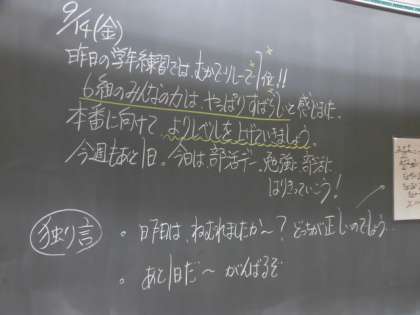 9/14(金)
昨日の学年練習では、むかでリレーで1位!!
6組のみんなの力は、やっぱりすばらしいと感じました。
本番に向けて、よりレベルを上げていきましょう。
今週もあと1日。今日は、部活デー。勉強に部活に
はりきっていこう!
独り言
・昨日は、ねむれましたか〜? どっちが正しいのでしょう…
・あと1日だ〜 がんばるぞ